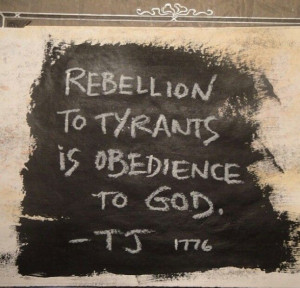 REBELLION
TO TYRANTS
IS OBEDIENCE
TO GOD.
- TJ 1776